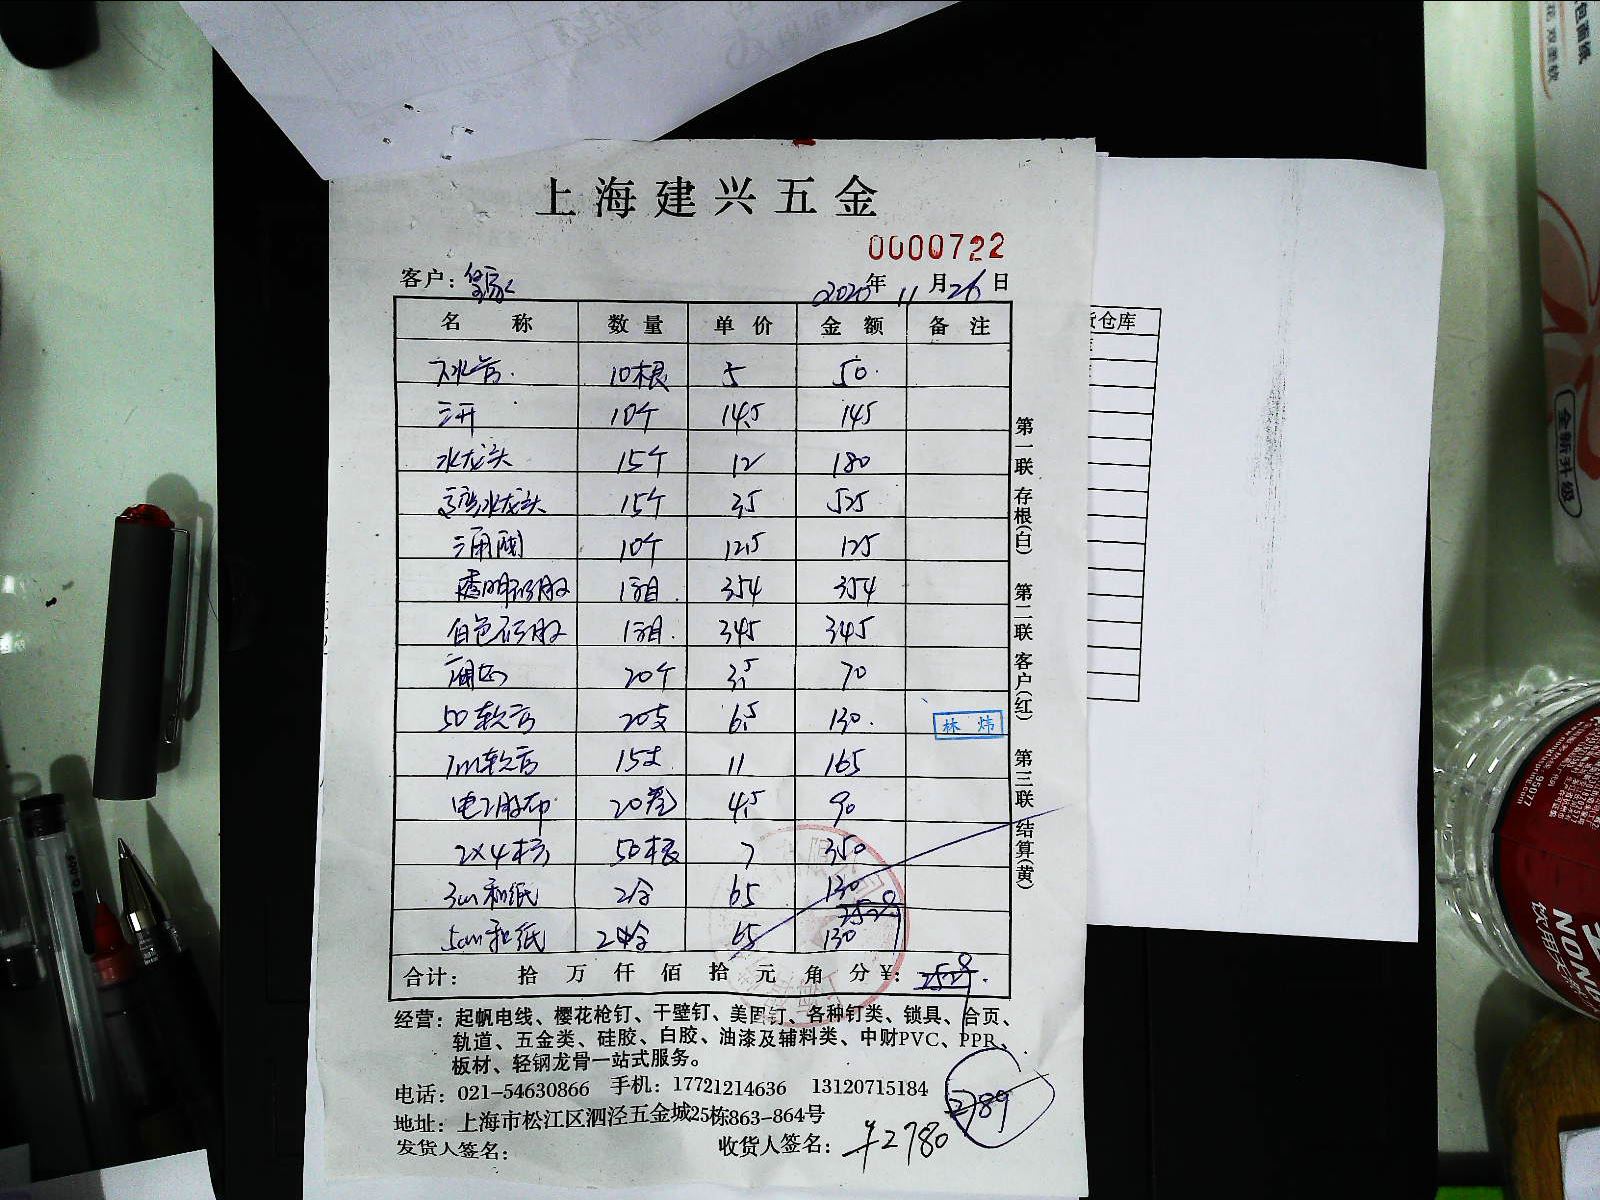 上海建兴五金
0000722
客户：
2020年 11 月26日
名 称 数 量 单 价 金 额 备 注
下水管 10根 5 50
三开 10个 14.5 145
水龙头 15个 12 180
水龙头 15个 35 525
三角阀 10个 12.5 125
透明硅胶 1箱 354 354
白色硅胶 1箱 345 345
20个 3.5 70
50软管 20支 6.5 130
1m软管 15支 11 165
电工胶布 20卷 4.5 90
2×4木方 50根 7 350
3cm和纸 2仓 65 130
2529
5cm和纸 2仓 65 130
合计： 拾 万 仟 佰 拾 元 角 分 ¥: 2529
林 炜
第一联 存根(白) 第二联 客户(红) 第三联 结算(黄)
经营：起帆电线、樱花枪钉、干壁钉、美固钉、各种钉类、锁具、合页、
轨道、五金类、硅胶、白胶、油漆及辅料类、中财PVC、PPR、
板材、轻钢龙骨一站式服务。
电话：021-54630866 手机：17721214636 13120715184
2789
地址：上海市松江区泗泾五金城25栋863-864号
发货人签名： 收货人签名： ¥2780
货仓库
包面纸
双面软
全新升级
95077
NONG
饮用